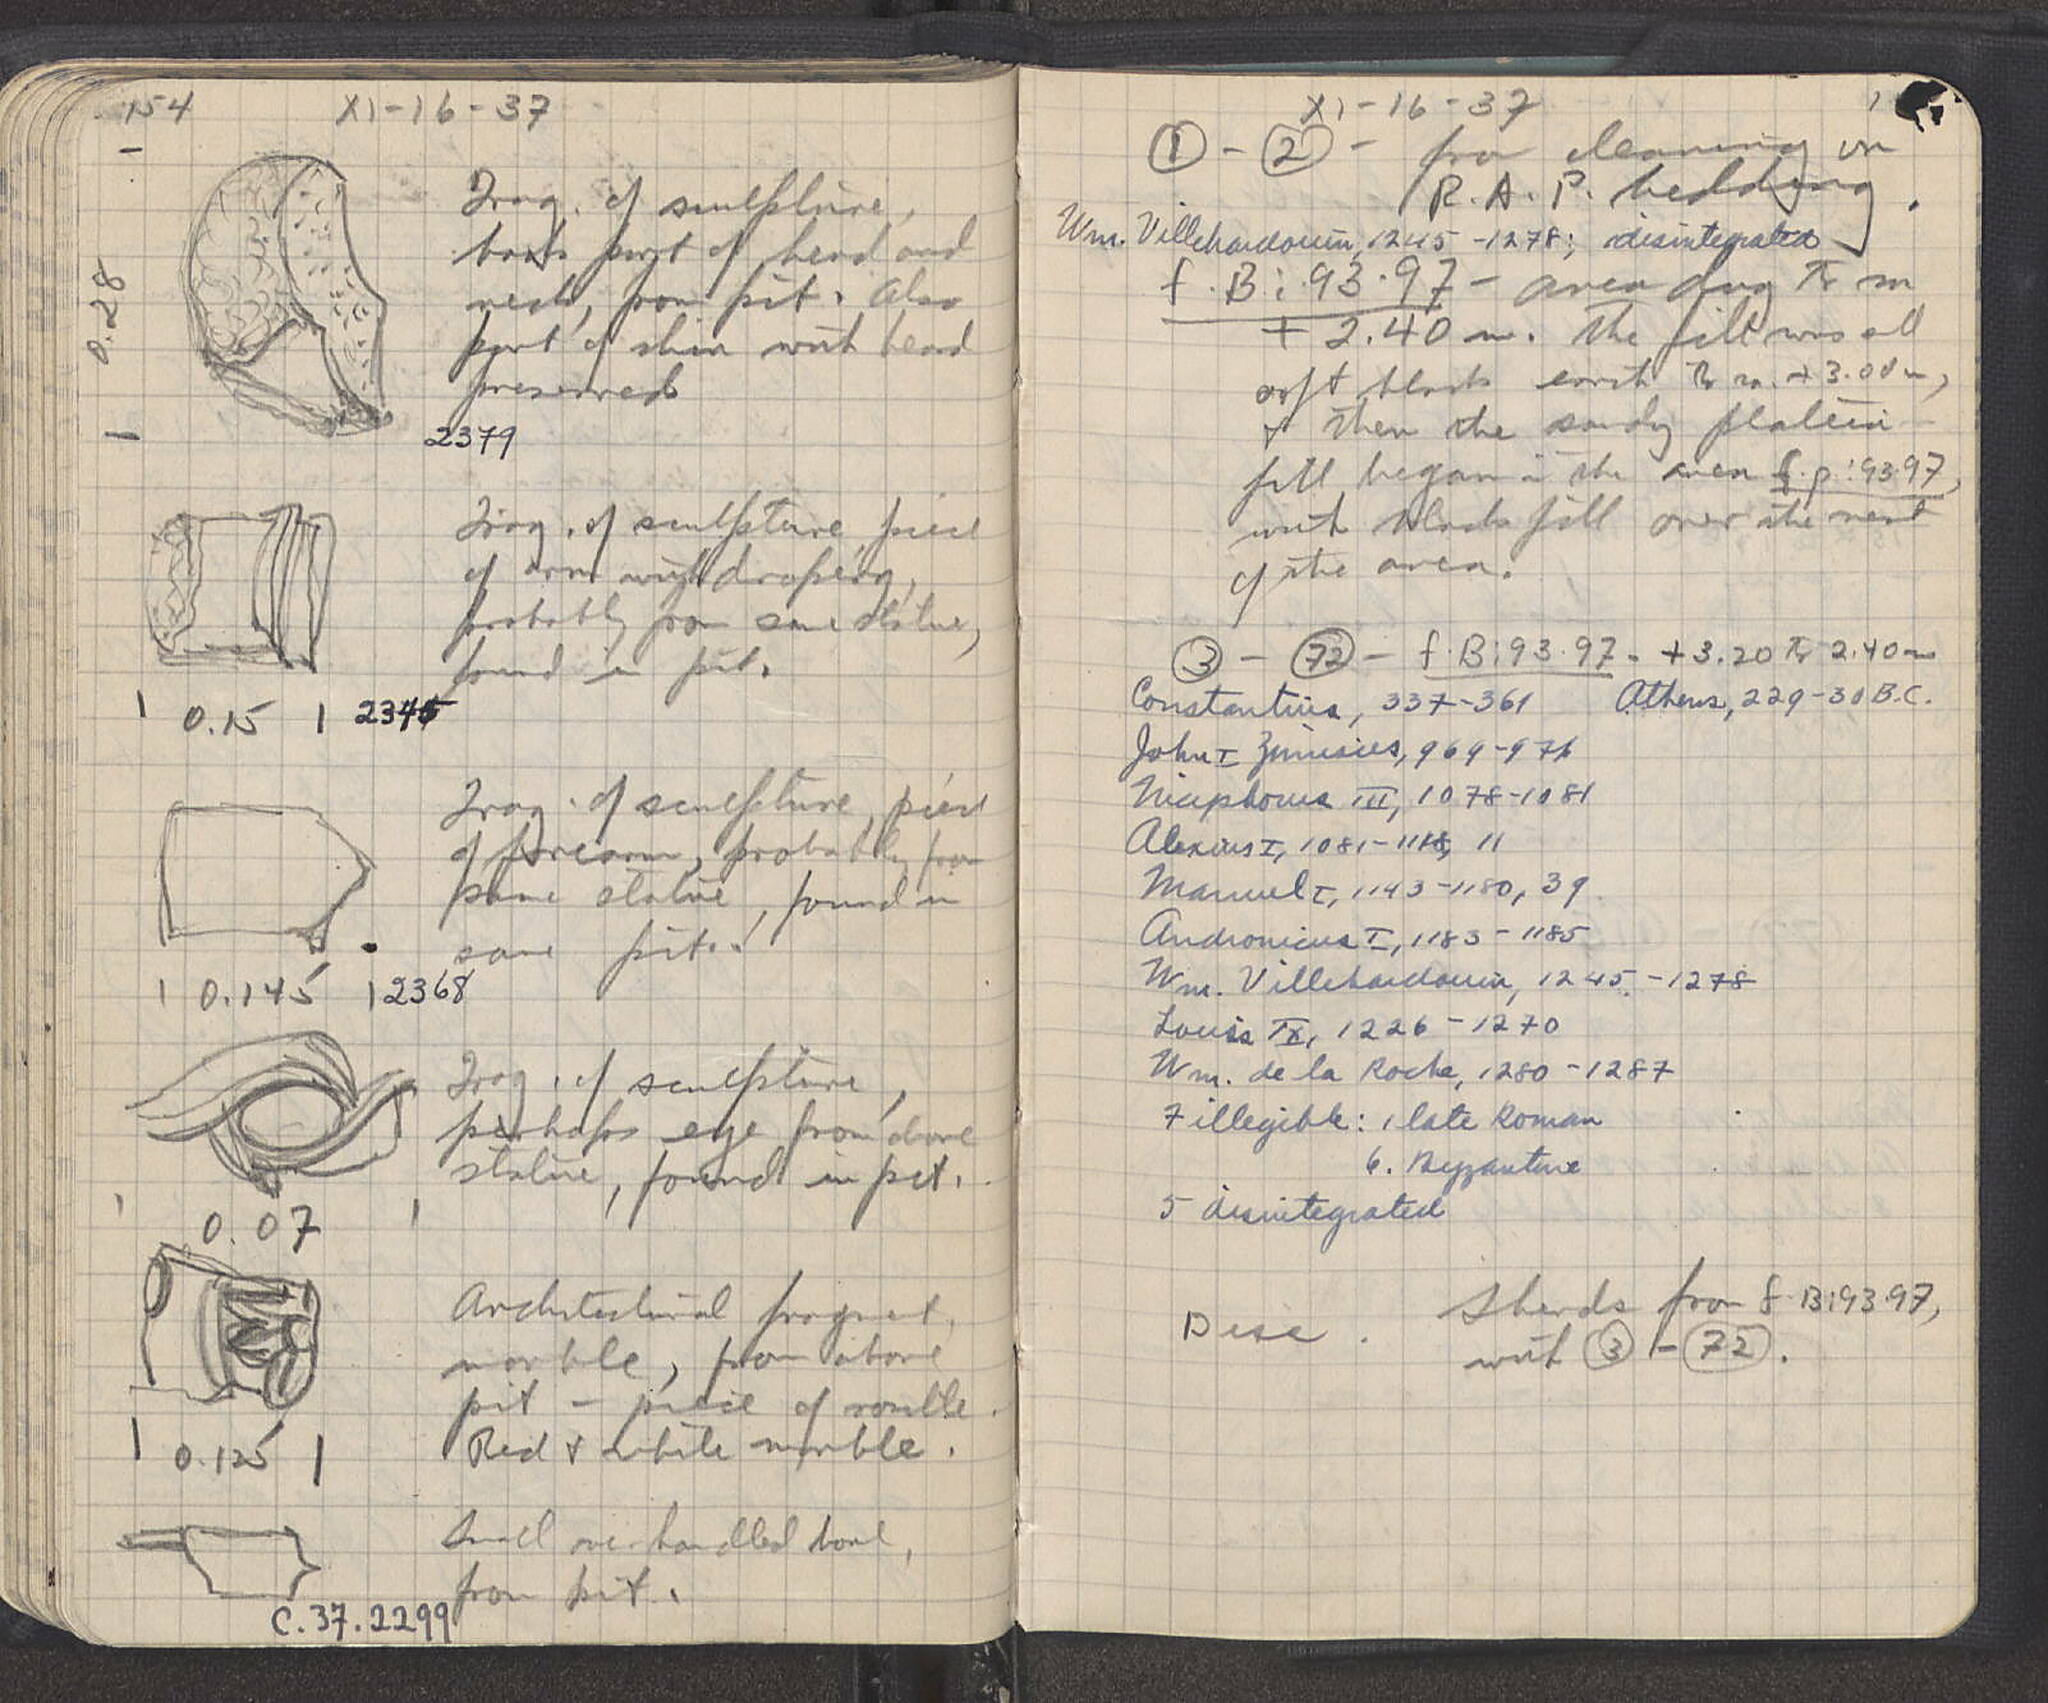 154 XI-16-37
0.28
Frag. of sculpture,
back part of head and
neck, from pit. Also
part of skin with beard
preserved
2379
Frag. of sculpture, piece
of arm with drapery,
probably from same statue,
found in pit.
0.15 2345
Frag. of sculpture, piece
of forearm, probably from
same statue, found in
same pit.
0.145 2368
Frag. of sculpture,
perhaps eye from above
statue, found in pit.
0.07
Architectural fragment,
marble, from above
pit - piece of
Red & white marble.
0.125
Small one-handled bowl,
from pit.
C.37.2299
XI-16-37 1
① - ② - from cleaning in
R.A.P. bedding.
Wm. Villehardouin, 1245-1278; disintegrated
f.B:93.97 - area dug to m
+ 2.40 m. The fill was all
soft black earth to m. + 3.00 m,
& then the sandy
fill began in the area f.p:93.97,
with black fill over the rest
of the area.
③ - 72 - f.B:93.97 - +3.20 to 2.40 m
Constantius, 337-361 Athens, 229-30 B.C.
John I Zimisces, 969-976
Nicephorus III, 1078-1081
Alexius I, 1081-1118, 11
Manuel I, 1143-1180, 39
Andronicus I, 1183-1185
Wm. Villehardouin, 1245-1278
Louis IX, 1226-1270
Wm. de la Roche, 1280-1287
7 illegible: 1 late Roman
6. Byzantine
5 disintegrated
Disc. Sherds from f.B:93.97,
with ③ - 72.